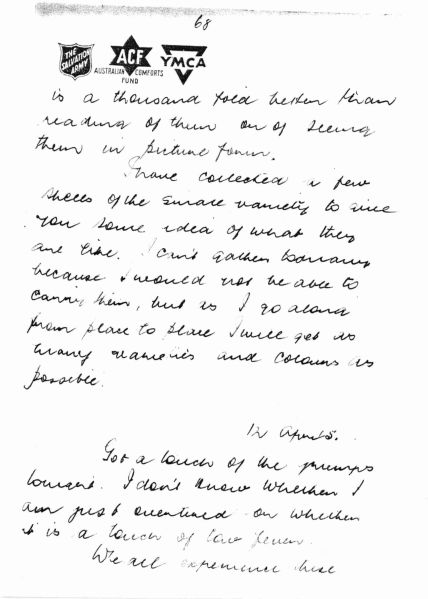 68
THE SALVATION ARMY
ACF
AUSTRALIAN COMFORTS FUND
YMCA
is a thousand fold better than
reading of them or of seeing
them in picture form.
I have collected a few
shells of the variety to give
you some idea of what they
are like. I can't gather
because I would not be able to
carry them, but as I go along
from place to place I will get as
many varieties and colours as
possible.
12 April 5.
Got a touch of the
tonight. I don't know whether I
am just overtired or whether
it is a touch of fever.
We all experience these